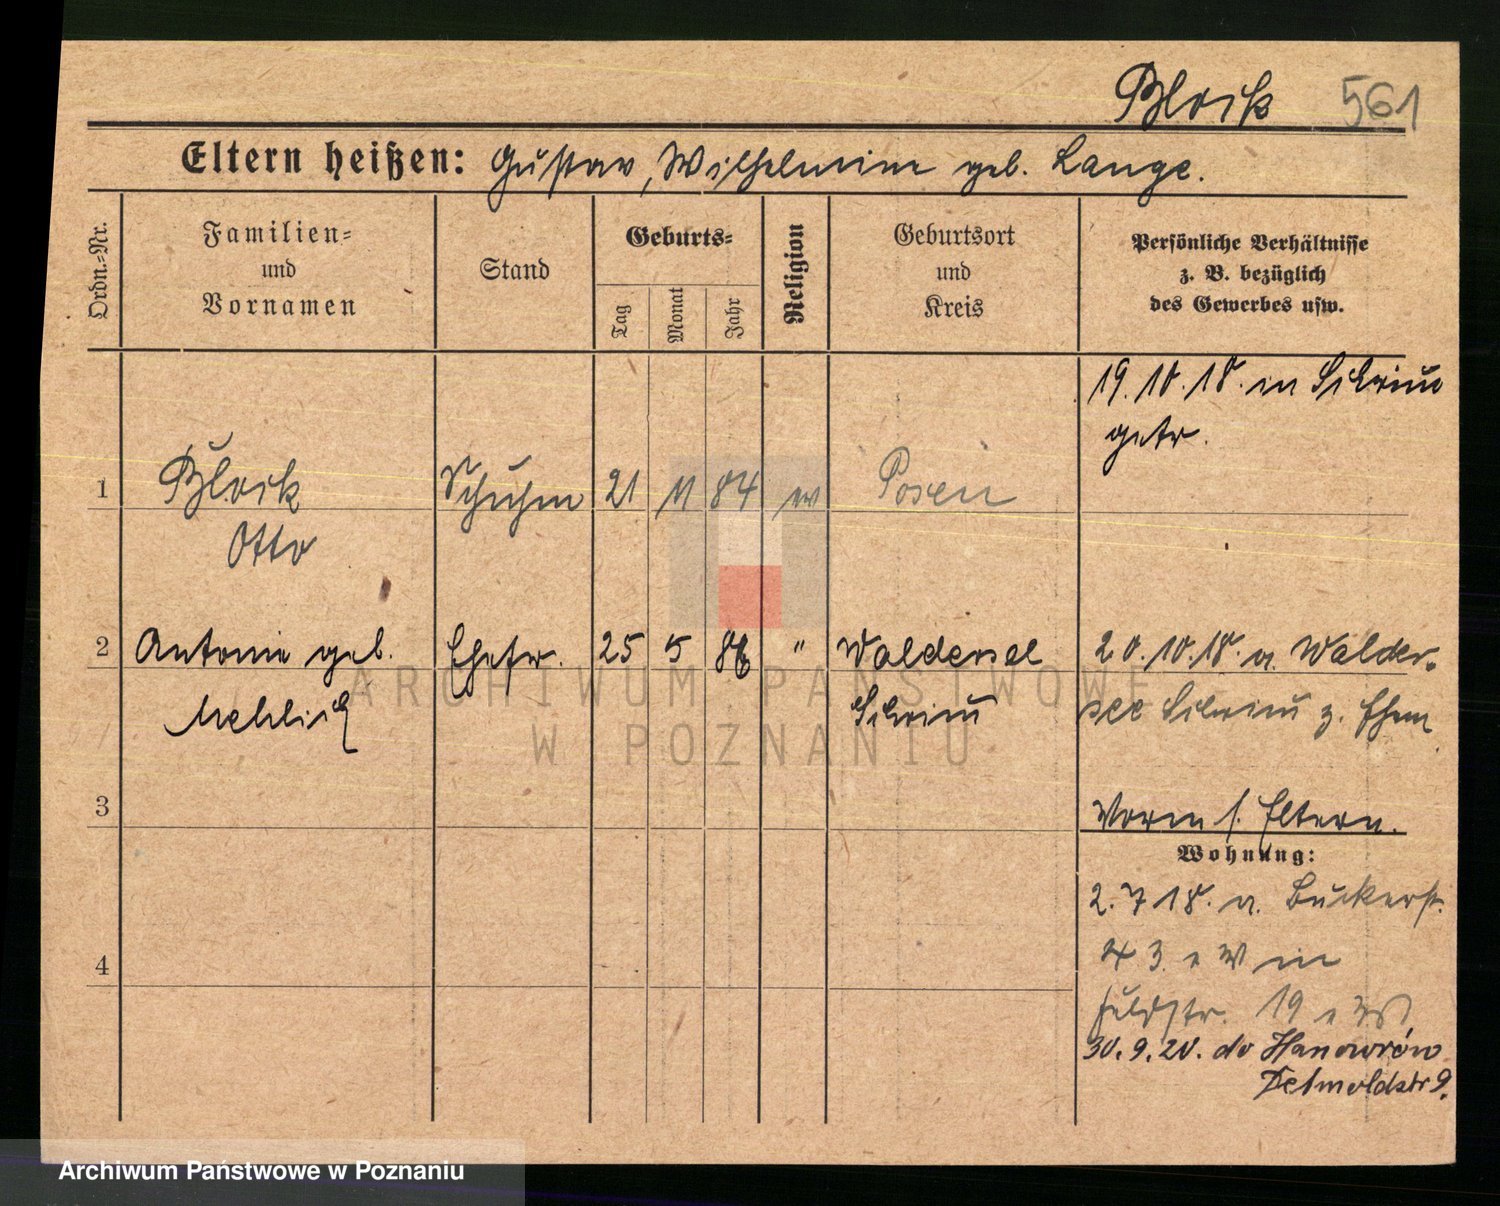 Block 561
Eltern heißen: Gustav, Wilhelmine geb. Lange.
Ordn.-Nr.
Familien-
und
Vornamen
Stand
Geburts-
Tag
Monat
Jahr
Religion
Geburtsort
und
Kreis
Persönliche Verhältnisse
z. B. bezüglich
des Gewerbes usw.
19. 10. 18. in Schrimm
getr.
1 Block Schuhm 21 11 84 ev Posen
Otto
2 Antonie geb. Ehefr. 25 5 86 " Waldersee 20. 10. 18. a. Walder-
Schrimm see Schrimm z. Ehem
3
Vorm s. Eltern.
Wohnung:
2. 7 18. a. Buckerstr.
4
Feldstr. 19
30. 9. 20. do Hanowrów
Detmoldstr 9.
ARCHIWUM PAŃSTWOWE
W POZNANIU
Archiwum Państwowe w Poznaniu